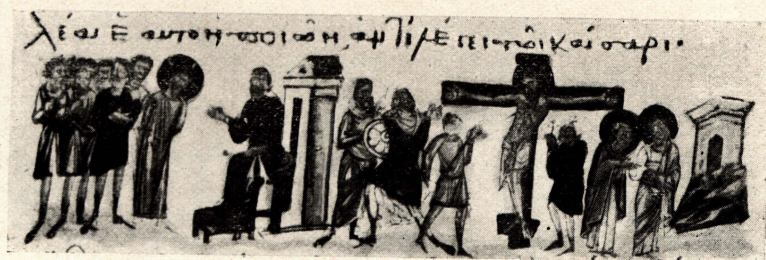 λέα ἑαυτὸν ποιῶν, ἀντιλέγει τῶι καίσαρι·